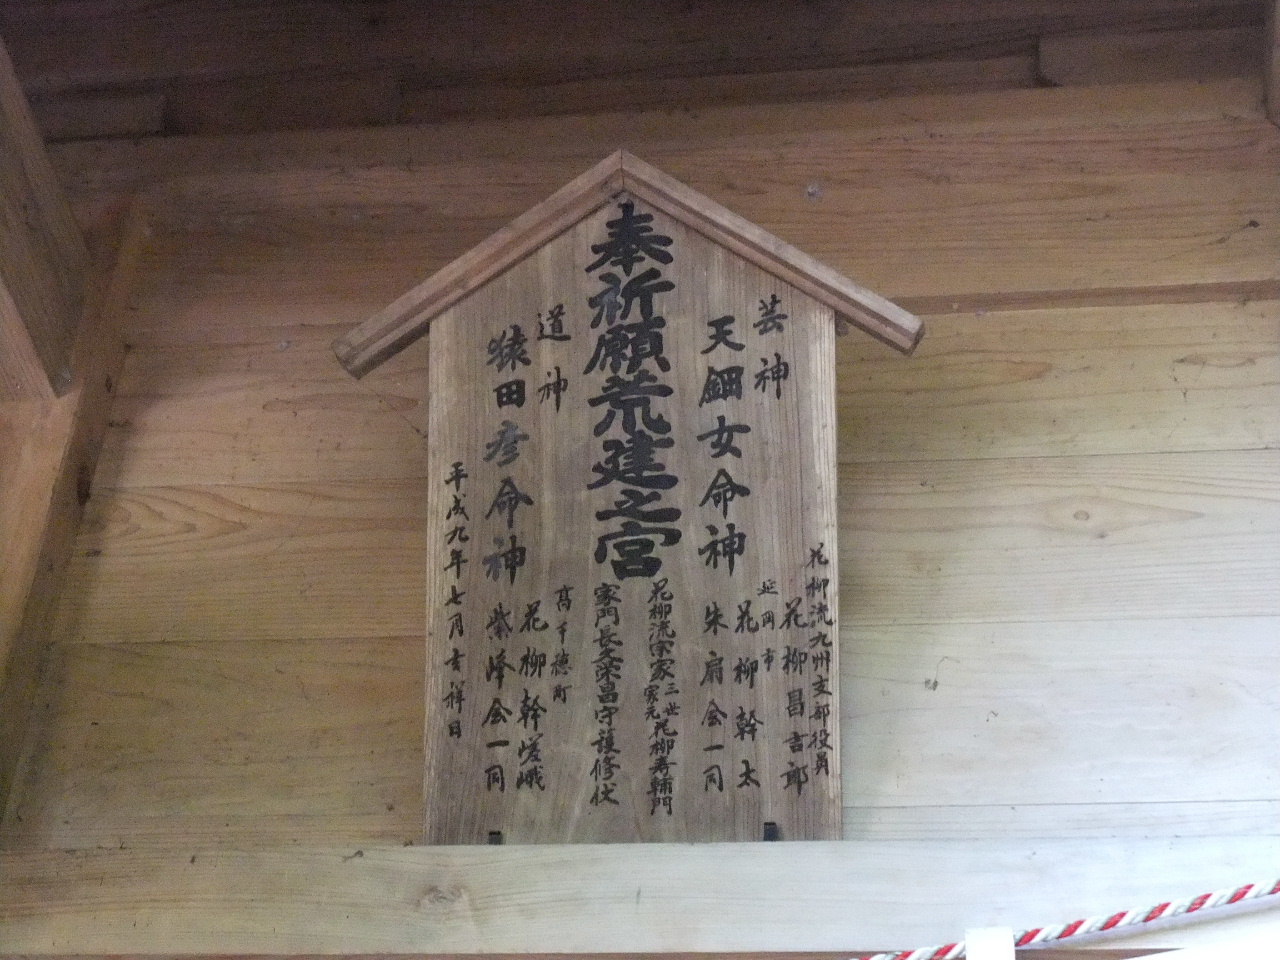 奉祈願荒建之宮
芸神
天鈿女命神
花柳流九州支部役員
花柳昌吉郎
延岡市
花柳幹太
朱扇会一同
花柳流宗家
三世
家元
花柳寿輔門
家門長久栄昌守護修伏
道神
猿田彦命神
高千穂町
花柳幹嵯峨
紫峰会一同
平成九年七月吉祥日